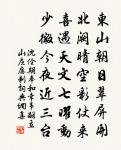 東山朝日翠屏開
北闕晴空彩仗來
喜遇天文七曜動
少微今夜近三台
沈佺期奉和幸韋嗣立
山庄應制詞典詞集